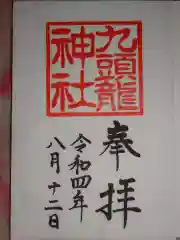 九頭龍
神社
奉拝
令和四年
八月十二日